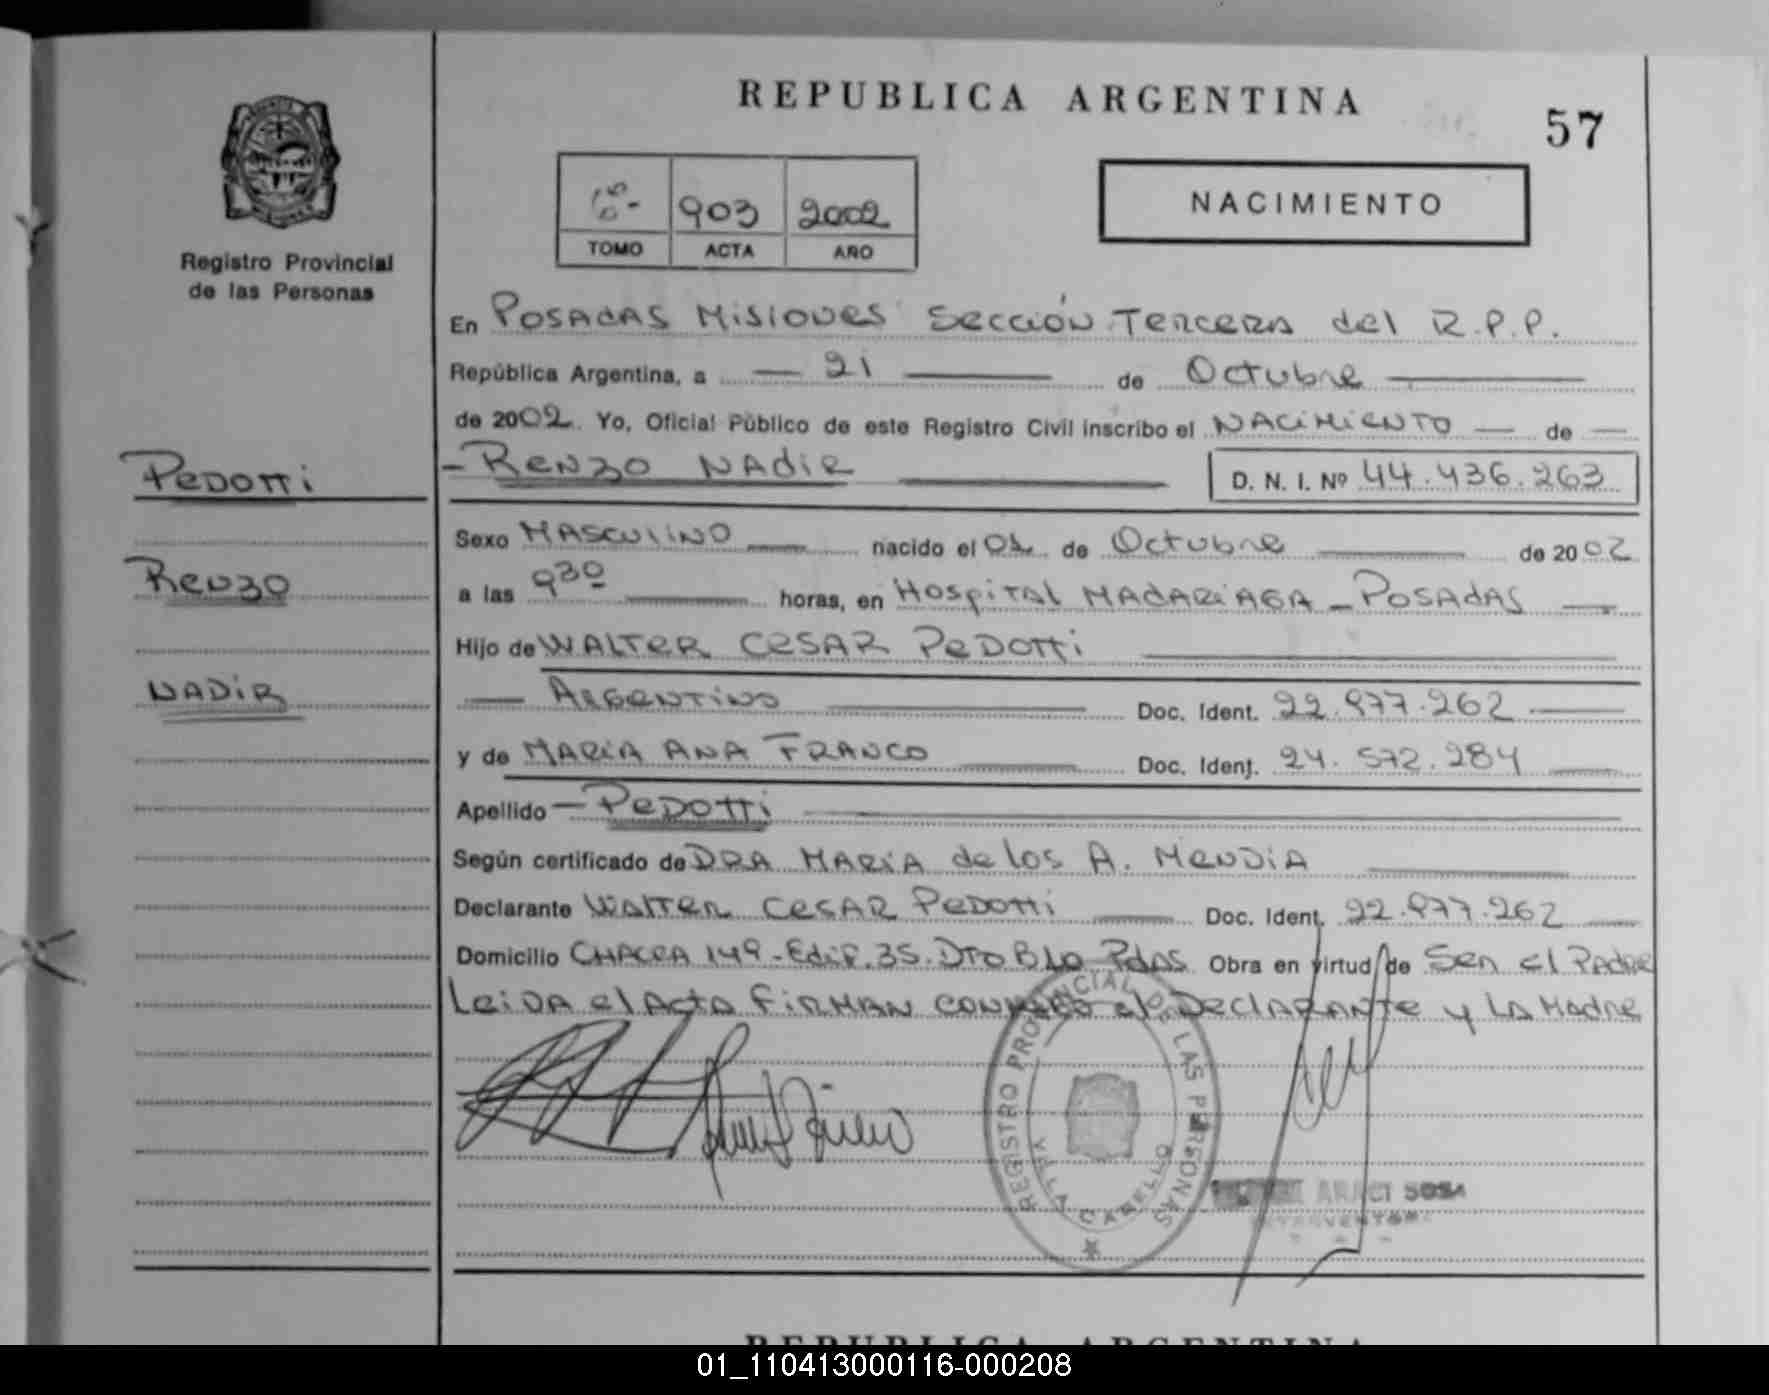 REPUBLICA ARGENTINA
57
903 2002
TOMO ACTA AÑO
NACIMIENTO
Registro Provincial
de las Personas
En POSADAS MISIONES Sección TERCERA del R.P.P.
República Argentina, a — 21 — de Octubre —
de 2002. Yo, Oficial Público de este Registro Civil inscribo el NACIMIENTO — de —
PEDOTTI
— RENZO NADIR — D. N. I. Nº 44.436.263
Sexo MASCULINO — nacido el 01 de Octubre — de 2002
RENZO
a las 9 30 — horas, en HOSPITAL MADARIAGA - POSADAS —
Hijo de WALTER CESAR PEDOTTI —
NADIR
— ARGENTINO — Doc. Ident. 22.977.262 —
y de MARIA ANA FRANCO — Doc. Ident. 24.572.284 —
Apellido — PEDOTTI —
Según certificado de DRA MARIA de los A. MENDIA —
Declarante WALTER CESAR PEDOTTI — Doc. Ident. 22.977.262 —
Domicilio CHACRA 149 - Edif. 35. DTO B Pdas Obra en virtud de Ser el PADRE
LEIDA el Acta FIRMAN CONMIGO el DECLARANTE y LA Madre
REGISTRO PROVINCIAL DE LAS PERSONAS
SOSA
REPUBLICA ARGENTINA
01_110413000116-000208